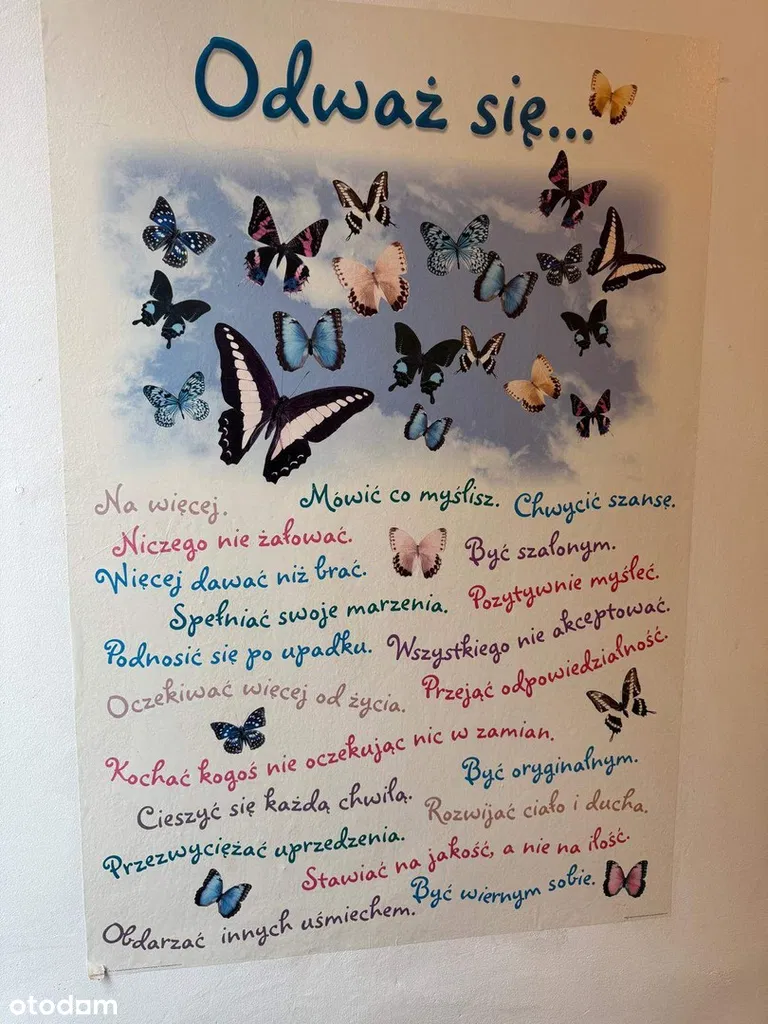 Odważ się...
Na więcej.
Mówić co myślisz.
Chwycić szansę.
Niczego nie żałować.
Być szalonym.
Więcej dawać niż brać.
Pozytywnie myśleć.
Spełniać swoje marzenia.
Wszystkiego nie akceptować.
Podnosić się po upadku.
Przejąć odpowiedzialność.
Oczekiwać więcej od życia.
Kochać kogoś nie oczekując nic w zamian.
Być oryginalnym.
Cieszyć się każdą chwilą.
Rozwijać ciało i ducha.
Przezwyciężać uprzedzenia.
Stawiać na jakość, a nie na ilość.
Być wiernym sobie.
Obdarzać innych uśmiechem.
otodom